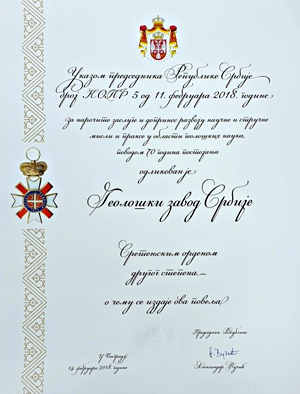 Указом председника Републике Србије
број КОПР 5 од 11. фебруара 2018. године
за нарочите заслуге и допринос развоју научне и стручне
мисли и праксе у области геолошких наука,
поводом 70 година постојања
одликован је
Геолошки завод Србије
Сретењским орденом
другог степена
о чему се издаје ова повеља
У Београду
14. фебруара 2018. године
Председник Републике
Александар Вучић